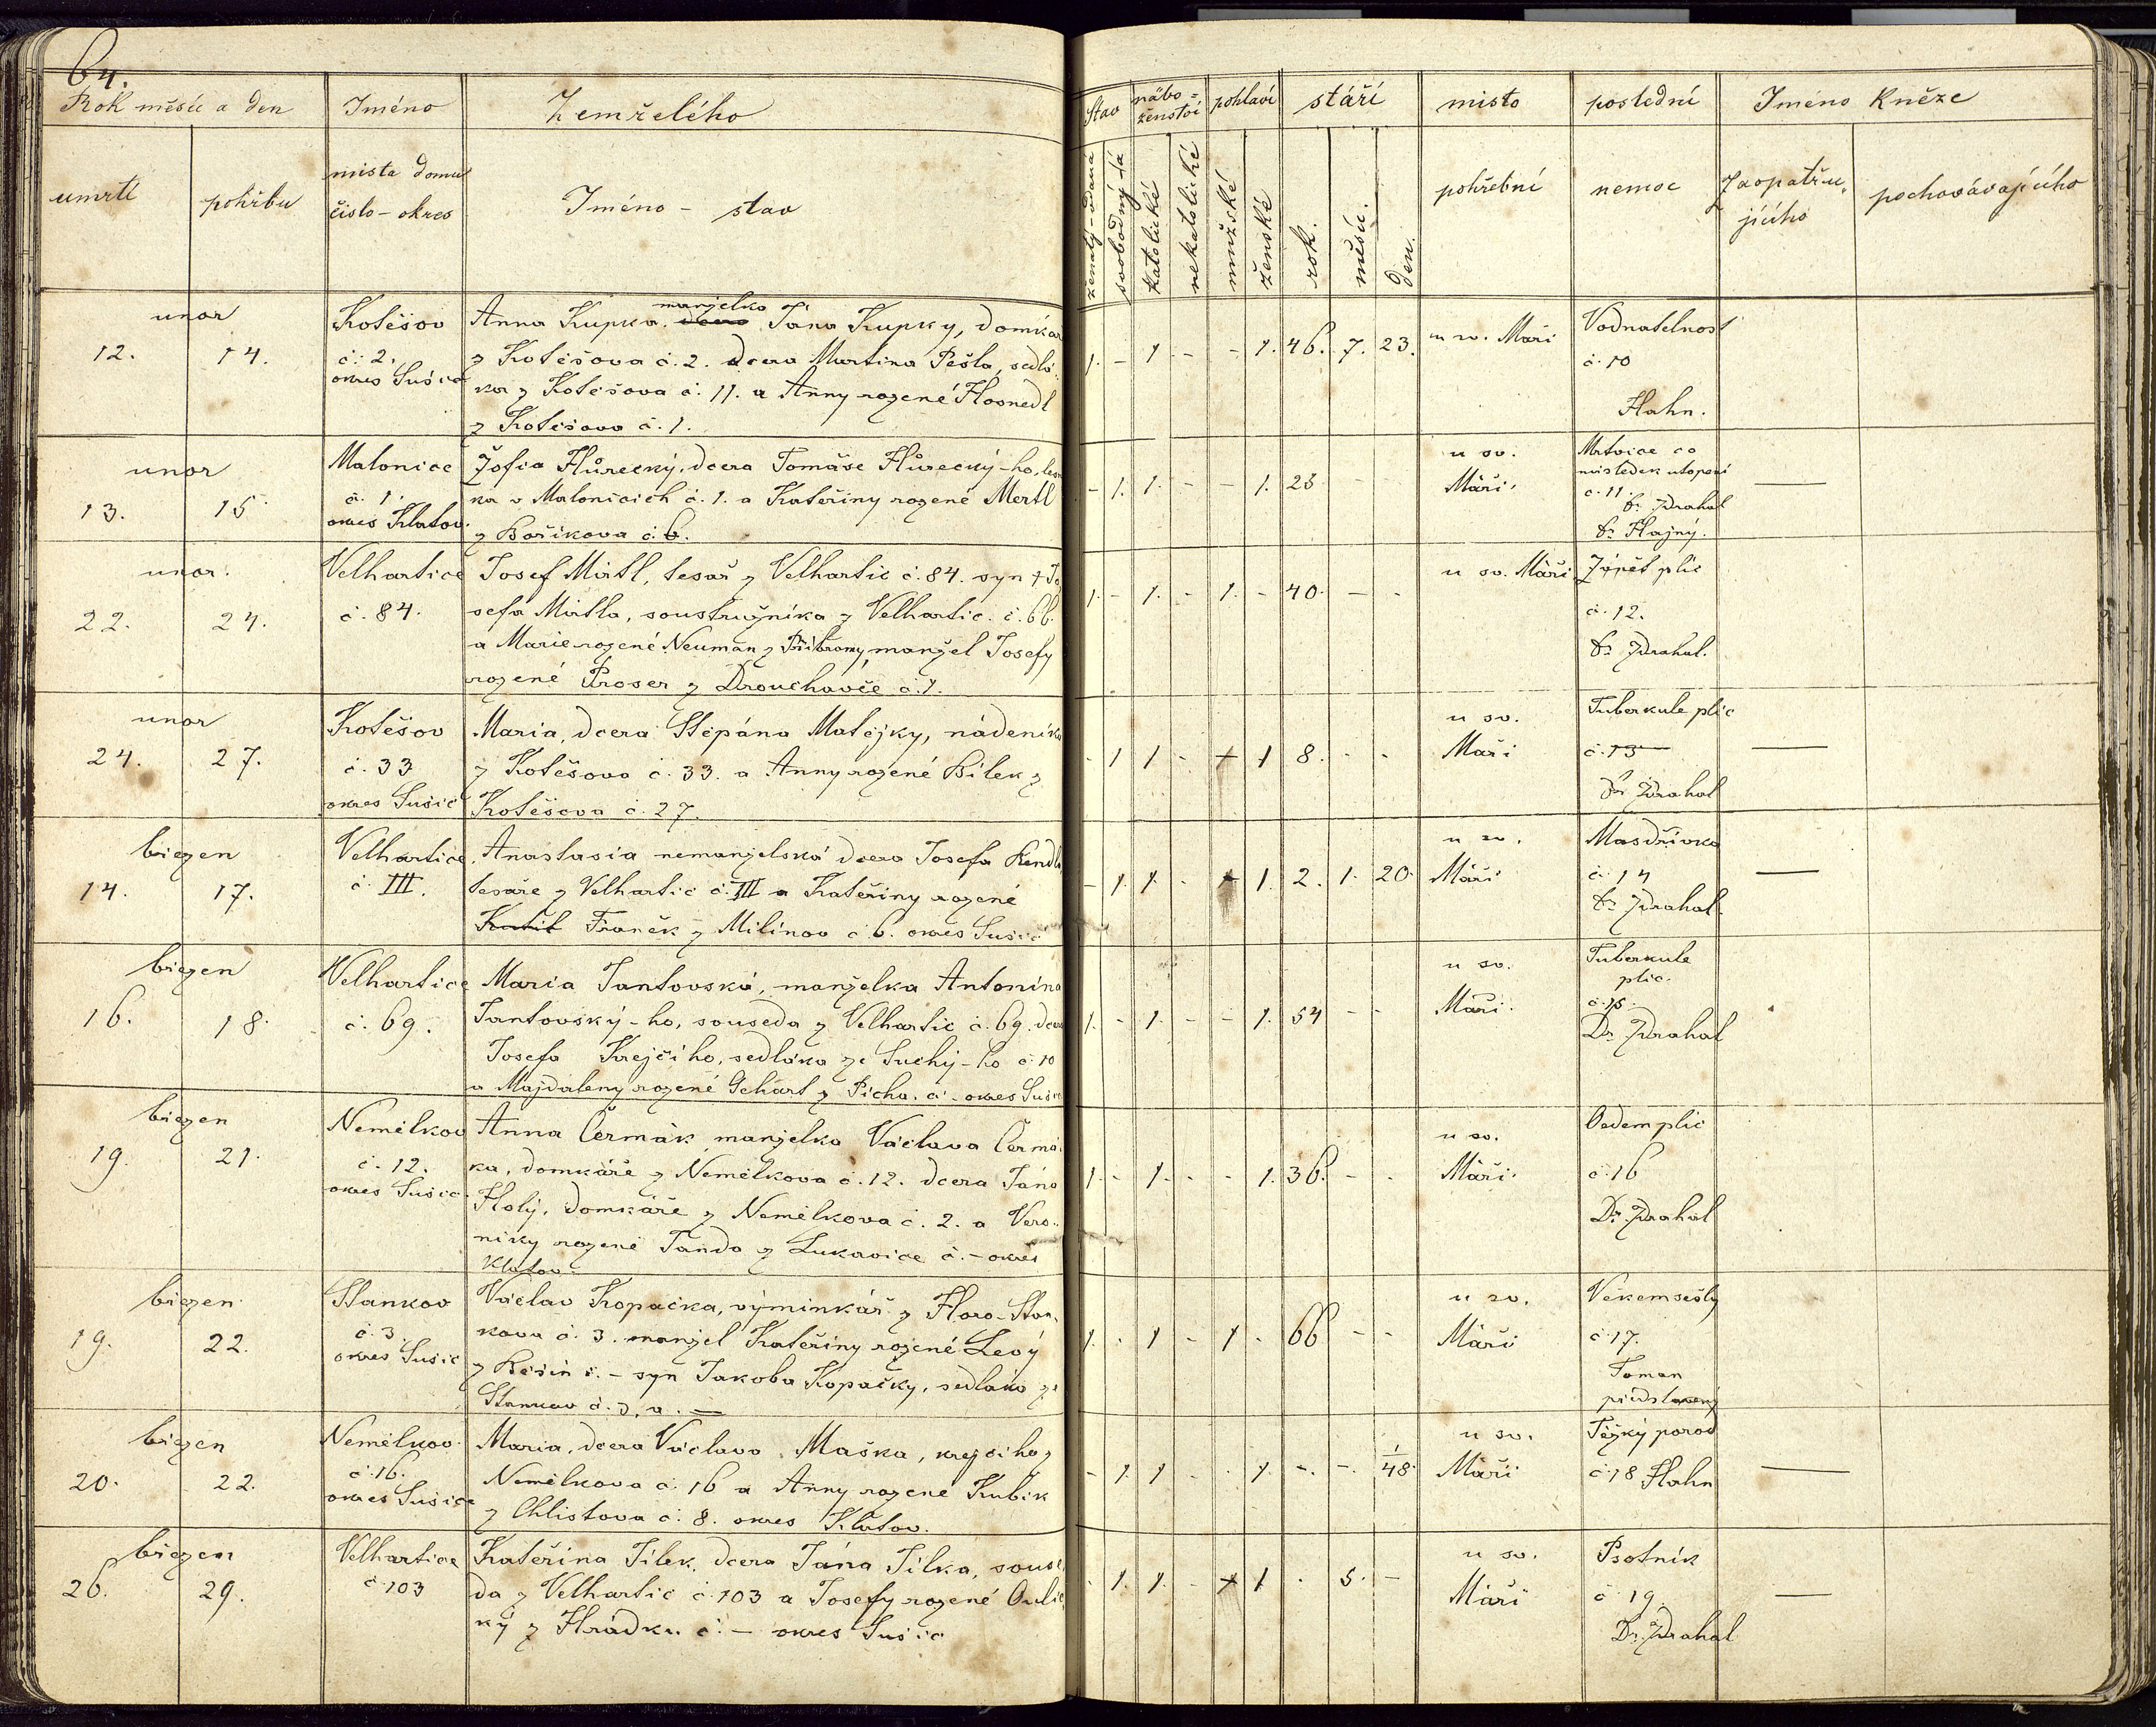 64.
Rok měsíc a den
Jméno
Zemřelého
umrtí
pohřbu
mista domu
čislo - okres
Jméno - stav
Stav
nábo=
ženstvi
pohlaví
stáří
misto
poslední
Jméno Kněze
ženatý - vdaná
svobodný - dá
katolické
nekatolické
mužské
ženské
rok.
měsíc.
den.
pohřební
nemoc
Zaopatřu-
jícího
pochovávajícího
unor
12. 14.
Kotěšov
č. 2.
okres Sušice
manželka
Anna Kupka. dcera Jána Kupky, domkář
z Kotěšova č. 2. dcera Martina Pešla, sedlá
ka z Kotěšova č. 11. a Anny rozené Hosnedl
z Kotěšova č. 1.
1. - 1 - - 1. 46. 7. 23.
u sv. Máři
Vodnatelnost
č. 10
Hahn.
unor
13. 15
Malonice
č. 1.
okres Klatov.
Žofia Hůrecký, dcera Tomáše Hůrecký-ho,
ka v Malonicich č. 1. a Kateřiny rozené Mertl
z Bořikova č. 6.
- 1. 1. - - 1. 23 - -
u sv.
Máři.
Mrtvice co
následek utopení
č. 11.
Dr Zdrahal
Dr Hajný.
unor.
22. 24.
Velhartice
č. 84.
Josef Mirtl, tesař z Velhartic č. 84. syn † Jo
sefa Mirtla, soustružníka z Velhartic. č. 66.
a Marie rozené Neuman z Přibramy, manžel Josefy
rozené Proser z Drouhavče č. 1.
1. - 1. - 1. - 40. - -
u sv. Máři
Zánět plic
č. 12.
Dr Zdrahal.
unor
24. 27.
Kotěšov
č. 33
okres Sušic
Maria, dcera Štěpána Matějky, nádeníka
z Kotěšova č. 33. a Anny rozené Bilek z
Kotěšova č. 27.
- 1 1 - + 1 8. - -
u sv.
Maři
Tuberkule plic
č. 13
Dr Zdrahal
březen
14. 17.
Velhartice
č. III.
Anastasia nemanželská dcera Josefa Rendla
tesaře z Velhartic č. III a Kateřiny rozené
Franěk z Milínov č. 6. okres Sušic
- 1. 1. - 1. 2. 1. 20.
u sv.
Máři
Masdřivka
č. 14
Dr Zdrahal.
březen
16. 18.
Velhartice
č. 69.
Maria Jantovská, manželka Antonína
Jantovský-ho, souseda z Velhartic č. 69. dcera
Josefa Krejčího, sedláka ze Suchý-ho č. 10
a Majdaleny rozené Gehart z Picha. č. - okres Sušic
1. - 1. - - 1. 54 - -
u sv.
Máři.
Tuberkule
plic.
č. 15.
Dr Zdrahal
březen
19. 21.
Nemělkov
č. 12.
okres Sušic.
Anna Čermák manželka Václava Čermá
ka, domkáře z Nemělkova č. 12. dcera Jána
Holý, domkáře z Nemělkova č. 2. a Vero-
niky rozené Janda z Lukavice č. - okres
Klatov.
1. - 1. - - 1. 36. - -
u sv.
Máři.
Oedem plic
č. 16
Dr. Zdrahal
březen
19. 22.
Stankov
č. 3.
okres Sušic
Václav Kopačka, výminkář z Horo-Stan-
kova č. 3. manžel Kateřiny rozené Levý
z Rešin č. - syn Jakoba Kopačky, sedláka ze
Stankov č. 3. a. -
1. - 1 - 1 - 66 - -
u sv.
Máři
Věkem sešlý
č. 17.
Toman
představený
březen
20. 22.
Nemělkov
č. 16.
okres Sušice
Maria, dcera Václava Maška, krejčího z
Nemělkova č. 16 a Anny rozené Kubík
z Chlistova č. 8. okres Klatov.
- 1. 1 - - 1. - - 1/48.
u sv.
Máři
Těžký porod
č. 18 Hahn
březen
26. 29.
Velhartice
č 103
Kateřina Jilek, dcera Jána Jilka, souse
da z Velhartic č. 103 a Josefy rozené Oulic
ký z Hrádku č. - okres Sušic
- 1. 1. - + 1 - 5. -
u sv.
Máři
Psotník
č 19.
Dr. Zdrahal